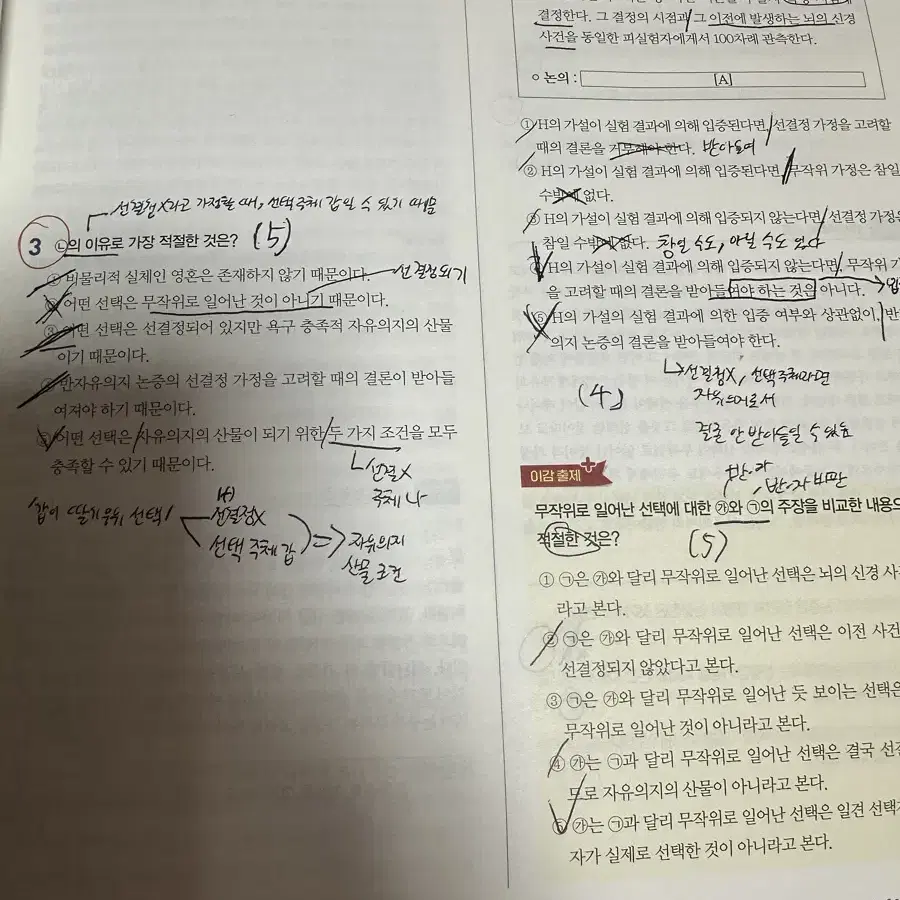 선결정X라고 가정할 때, 선택주체 갑일 수 있기 때문
3 ㉡의 이유로 가장 적절한 것은? (5)
① 비물리적 실체인 영혼은 존재하지 않기 때문이다.
선결정되기
② 어떤 선택은 무작위로 일어난 것이 아니기 때문이다.
③ 어떤 선택은 선결정되어 있지만 욕구 충족적 자유의지의 산물
이기 때문이다.
④ 반자유의지 논증의 선결정 가정을 고려할 때의 결론이 받아들
여져야 하기 때문이다.
⑤ 어떤 선택은 자유의지의 산물이 되기 위한 두 가지 조건을 모두
충족할 수 있기 때문이다.
선결X
주체 나
갑이 딸기우유 선택
선결정X
선택 주체 갑
=> 자유의지
산물 조건
결정한다. 그 결정의 시점과 그 이전에 발생하는 뇌의 신경
사건을 동일한 피실험자에게서 100차례 관측한다.
○ 논의 : [A]
① H의 가설이 실험 결과에 의해 입증된다면, 선결정 가정을 고려할
때의 결론을 거부해야 한다. 받아들여
② H의 가설이 실험 결과에 의해 입증된다면, 무작위 가정은 참일
수밖에 없다.
③ H의 가설이 실험 결과에 의해 입증되지 않는다면, 선결정 가정은
참일 수밖에 없다. 참일 수도, 아닐 수도 있다
④ H의 가설이 실험 결과에 의해 입증되지 않는다면, 무작위 가
을 고려할 때의 결론을 받아들여야 하는 것은 아니다.
⑤ H의 가설의 실험 결과에 의한 입증 여부와 상관없이, 반
의지 논증의 결론을 받아들여야 한다.
선결정X, 선택주체라면
(4)
자유의지로서
결론 안 받아들일 수 있음
이감 출제
반·자
반·자 비판
무작위로 일어난 선택에 대한 ㉮와 ㉠의 주장을 비교한 내용으
적절한 것은?
(5)
① ㉠은 ㉮와 달리 무작위로 일어난 선택은 뇌의 신경 사
라고 본다.
② ㉠은 ㉮와 달리 무작위로 일어난 선택은 이전 사건
선결정되지 않았다고 본다.
③ ㉠은 ㉮와 달리 무작위로 일어난 듯 보이는 선택은
무작위로 일어난 것이 아니라고 본다.
④ ㉮는 ㉠과 달리 무작위로 일어난 선택은 결국 선결
므로 자유의지의 산물이 아니라고 본다.
⑤ ㉮는 ㉠과 달리 무작위로 일어난 선택은 일견 선택
자가 실제로 선택한 것이 아니라고 본다.